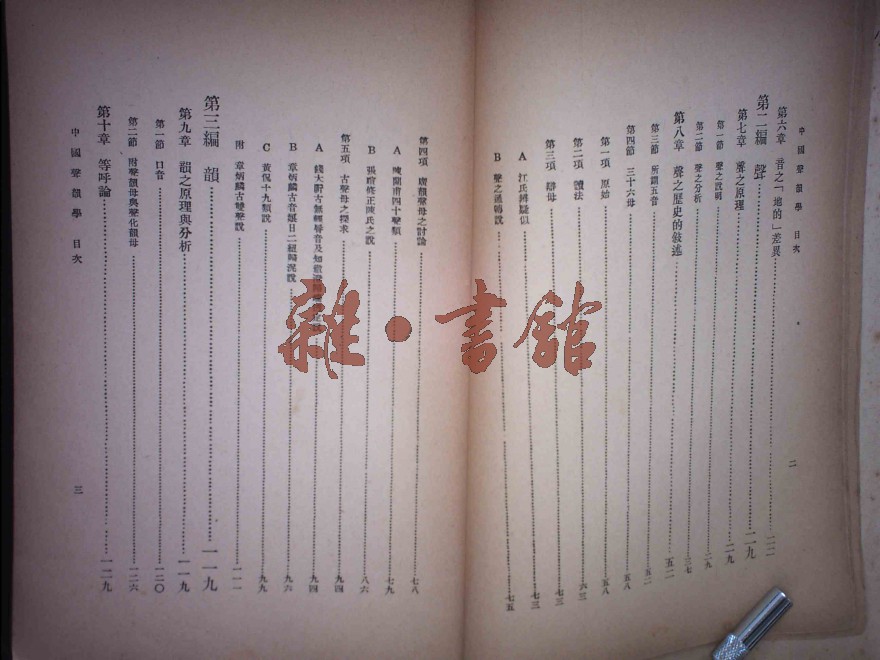 中國聲韻學 目次
第六章 音之「地的」差異 二二
第二編 聲 二九
第七章 聲之原理 二九
第一節 聲之說明 二九
第二節 聲之分析 三七
第八章 聲之歷史的敍述 五二
第三節 所謂五音 五二
第四節 三十六母 五八
第一項 原始 五八
第二項 讀法 六三
第三項 辯母 七三
A 江氏辨疑似 七三
B 聲之通轉說 七五
二
第四項 廣韻聲母之討論 七八
A 陳蘭甫四十聲類 七九
B 張煊修正陳氏之說 八六
第五項 古聲母之探求 九四
A 錢大昕古無輕脣音及知徹澄 九四
B 章炳麟古音娘日二紐歸泥說 九六
C 黃侃十九類說 九九
附 章炳麟古雙聲說 一一一
第三編 韻 一一九
第九章 韻之原理與分析 一一九
第一節 口音 一二〇
第二節 附聲韻母與聲化韻母 一二六
第十章 等呼論 一二九
中國聲韻學 目次
三
雜·書館